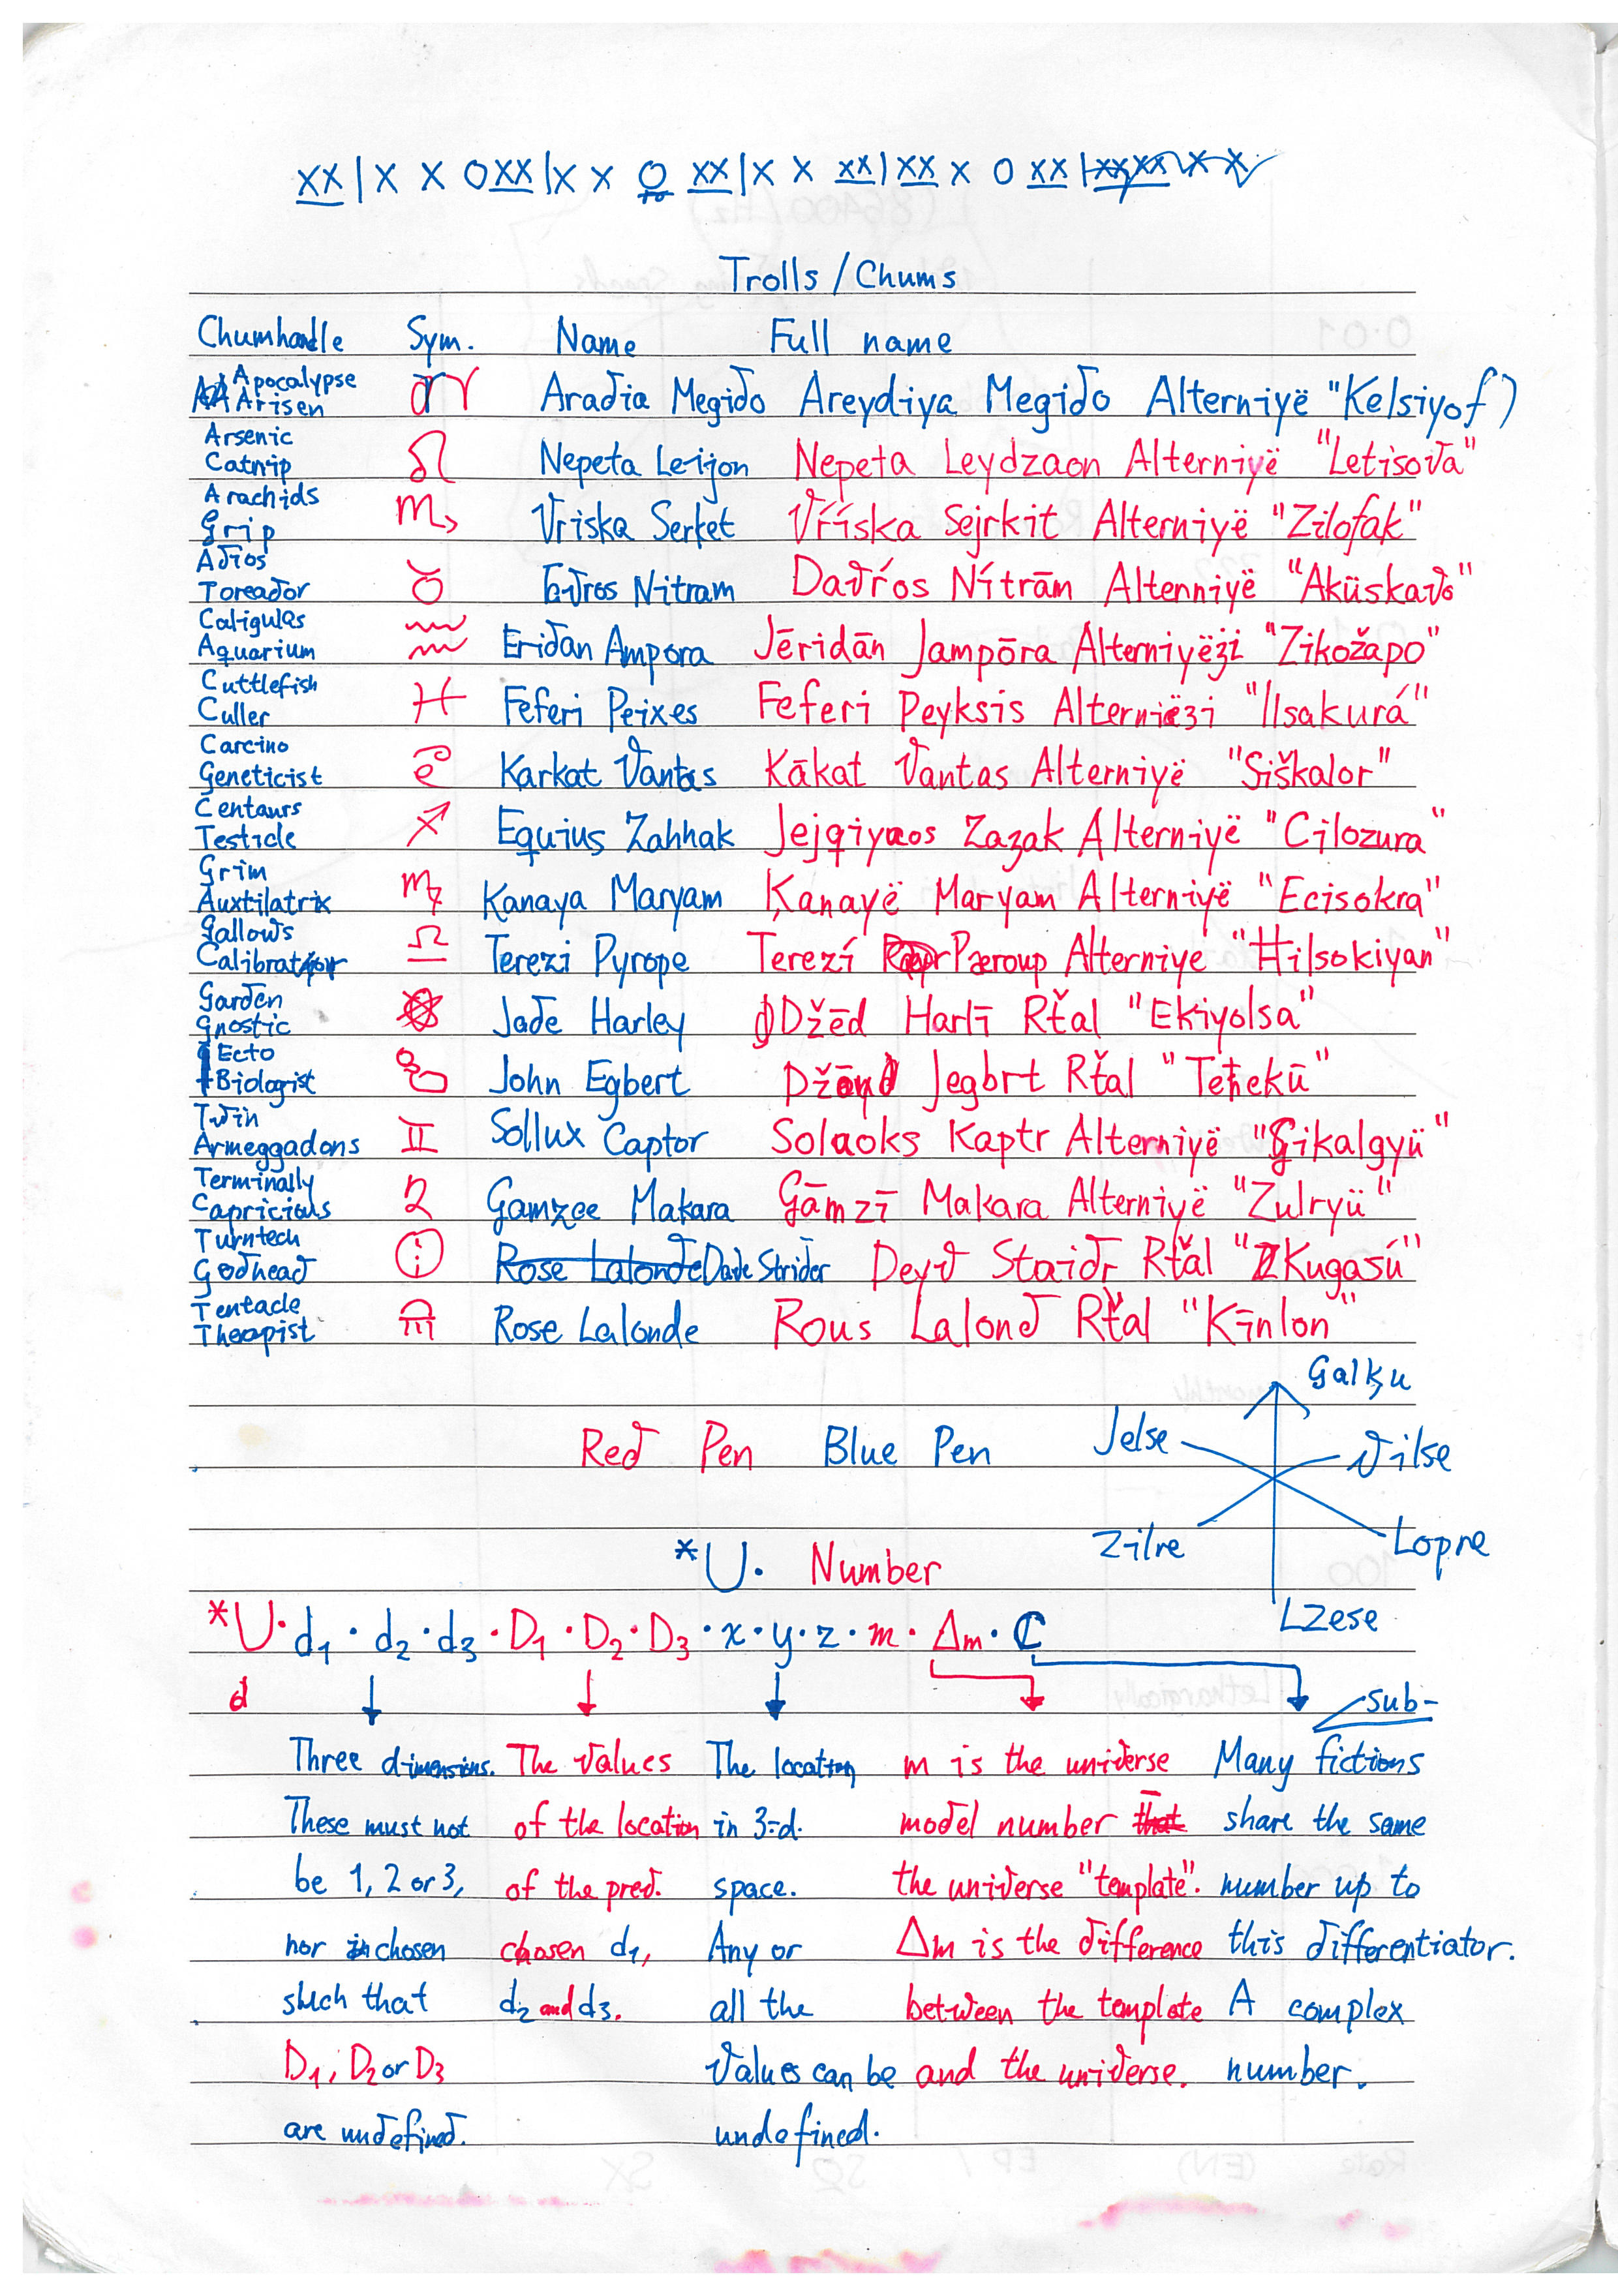 xx | x x 0 xx | x x 0 xx | x x xx | xx x 0 xx |
Trolls / Chums
Chumhandle Sym. Name Full name
Apocalypse
Arisen ♈ Aradia Megido Areydiya Megido Alterniyë "Kelsiyof"
Arsenic
Catnip ♌ Nepeta Leijon Nepeta Leydzaon Alterniyë "Letisova"
Arachids
Grip ♏ Vriska Serket Vŕíska Sejrkit Alterniyë "Zilofak"
Adios
Toreador ♉ Tavros Nitram Davŕos Nítrām Altenniyë "Aküskavo"
Caligulas
Aquarium ♒ Eridan Ampora Jēridān Jampōra Alterniyëʒi "Zikožapo"
Cuttlefish
Culler ♓ Feferi Peixes Feferi Peyksis Alterniëʒi "Ilsakurá"
Carcino
Geneticist ♋ Karkat Vantas Kākat Vantas Alterniyë "Siškalor"
Centaurs
Testicle ♐ Equius Zahhak Jejqiyaos Zaʒak Alterniyë "Cilozura"
Grim
Auxtilatrix ♍ Kanaya Maryam Ķanayë Maryam Alterniyë "Ecisokra"
Gallows
Calibrator ♎ Terezi Pyrope Terezí Pæroup Alterniye "Hilsokiyan"
Garden
Gnostic Jade Harley Džēd Harlī Rťal "Ekiyolsa"
Ecto
Biologist John Egbert Džōn Jegbrt Rťal "Teħekū"
Twin
Armeggadons ♊ Sollux Captor Solaoks Kaptr Alterniyë "Gikalgyü"
Terminally
Capricious Gamzee Makara Gāmzī Makara Alterniyë "Zulryü"
Turntech
Godhead Rose Lalonde Dave Strider Deyv Staidr Rťal "Kugasú"
Tentacle
Therapist Rose Lalonde Rous Lalond Rťal "Kīnlon"
Galķu
Red Pen Blue Pen Jelse Vilse
Zilre Lopre
*U. Number
Lzese
*U·d₁·d₂·d₃·D₁·D₂·D₃·x·y·z·m·Δm·ℂ
d
sub-
Three dimensions. The values The location m is the universe Many fictions
These must not of the location in 3-d. model number that share the same
be 1, 2 or 3, of the pred. space. the universe "template". number up to
nor chosen chosen d₁, Any or Δm is the difference this differentiator.
such that d₂ and d₃. all the between the template A complex
D₁, D₂ or D₃ values can be and the universe. number.
are undefined. undefined.